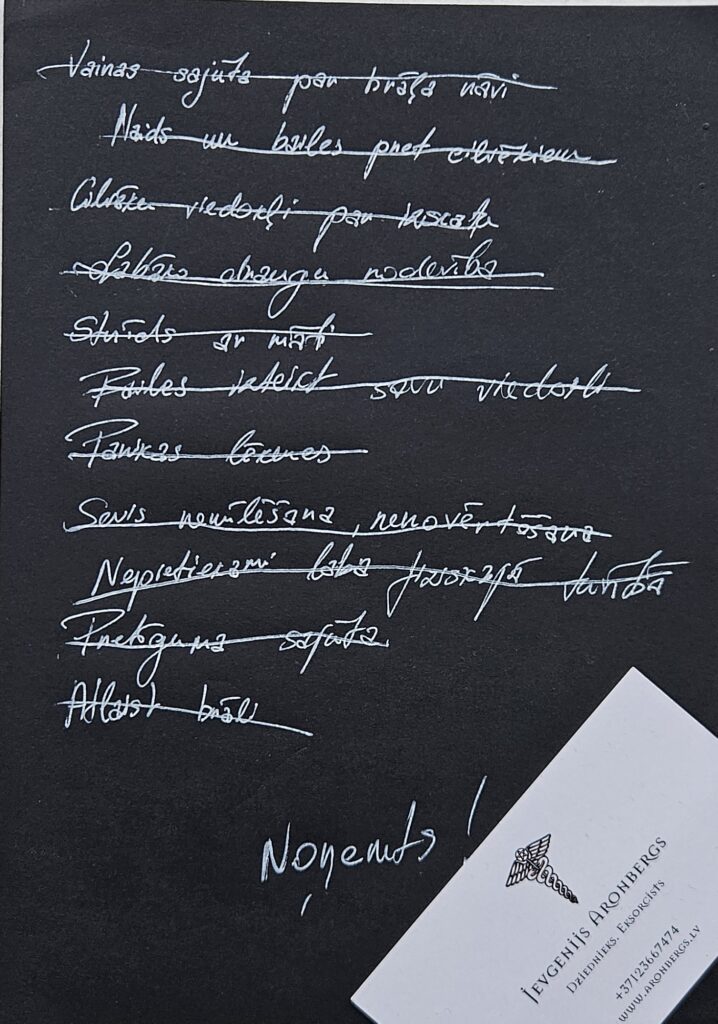 Vainas sajūta par brāļa nāvi
Naids un bailes pret cilvēkiem
Cilvēku viedokļi par izskatu
Labāko draugu nodevība
Strīds ar māti
Bailes izteikt savu viedokli
Panikas lēkmes
Sevis nemīlēšana, nenovērtēšana
Nepietiekami laba fiziskajā
Pretīguma sajūta
Atlaist brāli
Noņemts!
Jevgenijs Aronbergs
Dziednieks. Eksorcists
+37123667474
www.aronbergs.lv